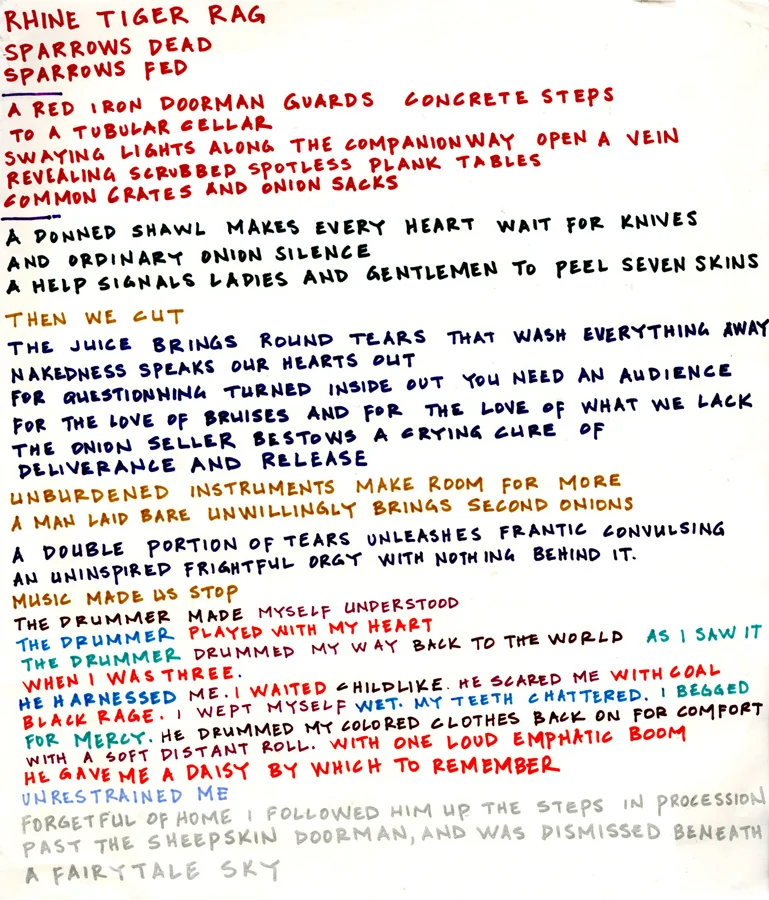 RHINE TIGER RAG
SPARROWS DEAD
SPARROWS FED
A RED IRON DOORMAN GUARDS CONCRETE STEPS
TO A TUBULAR CELLAR
SWAYING LIGHTS ALONG THE COMPANIONWAY OPEN A VEIN
REVEALING SCRUBBED SPOTLESS PLANK TABLES
COMMON CRATES AND ONION SACKS
A DONNED SHAWL MAKES EVERY HEART WAIT FOR KNIVES
AND ORDINARY ONION SILENCE
A HELP SIGNALS LADIES AND GENTLEMEN TO PEEL SEVEN SKINS
THEN WE CUT
THE JUICE BRINGS ROUND TEARS THAT WASH EVERYTHING AWAY
NAKEDNESS SPEAKS OUR HEARTS OUT
FOR QUESTIONNING TURNED INSIDE OUT YOU NEED AN AUDIENCE
FOR THE LOVE OF BRUISES AND FOR THE LOVE OF WHAT WE LACK
THE ONION SELLER BESTOWS A CRYING CURE OF
DELIVERANCE AND RELEASE
UNBURDENED INSTRUMENTS MAKE ROOM FOR MORE
A MAN LAID BARE UNWILLINGLY BRINGS SECOND ONIONS
A DOUBLE PORTION OF TEARS UNLEASHES FRANTIC CONVULSING
AN UNINSPIRED FRIGHTFUL ORGY WITH NOTHING BEHIND IT.
MUSIC MADE US STOP
THE DRUMMER MADE MYSELF UNDERSTOOD
THE DRUMMER PLAYED WITH MY HEART
THE DRUMMER DRUMMED MY WAY BACK TO THE WORLD AS I SAW IT
WHEN I WAS THREE.
HE HARNESSED ME. I WAITED CHILDLIKE. HE SCARED ME WITH COAL
BLACK RAGE. I WEPT MYSELF WET. MY TEETH CHATTERED. I BEGGED
FOR MERCY. HE DRUMMED MY COLORED CLOTHES BACK ON FOR COMFORT
WITH A SOFT DISTANT ROLL. WITH ONE LOUD EMPHATIC BOOM
HE GAVE ME A DAISY BY WHICH TO REMEMBER
UNRESTRAINED ME
FORGETFUL OF HOME I FOLLOWED HIM UP THE STEPS IN PROCESSION
PAST THE SHEEPSKIN DOORMAN, AND WAS DISMISSED BENEATH
A FAIRYTALE SKY